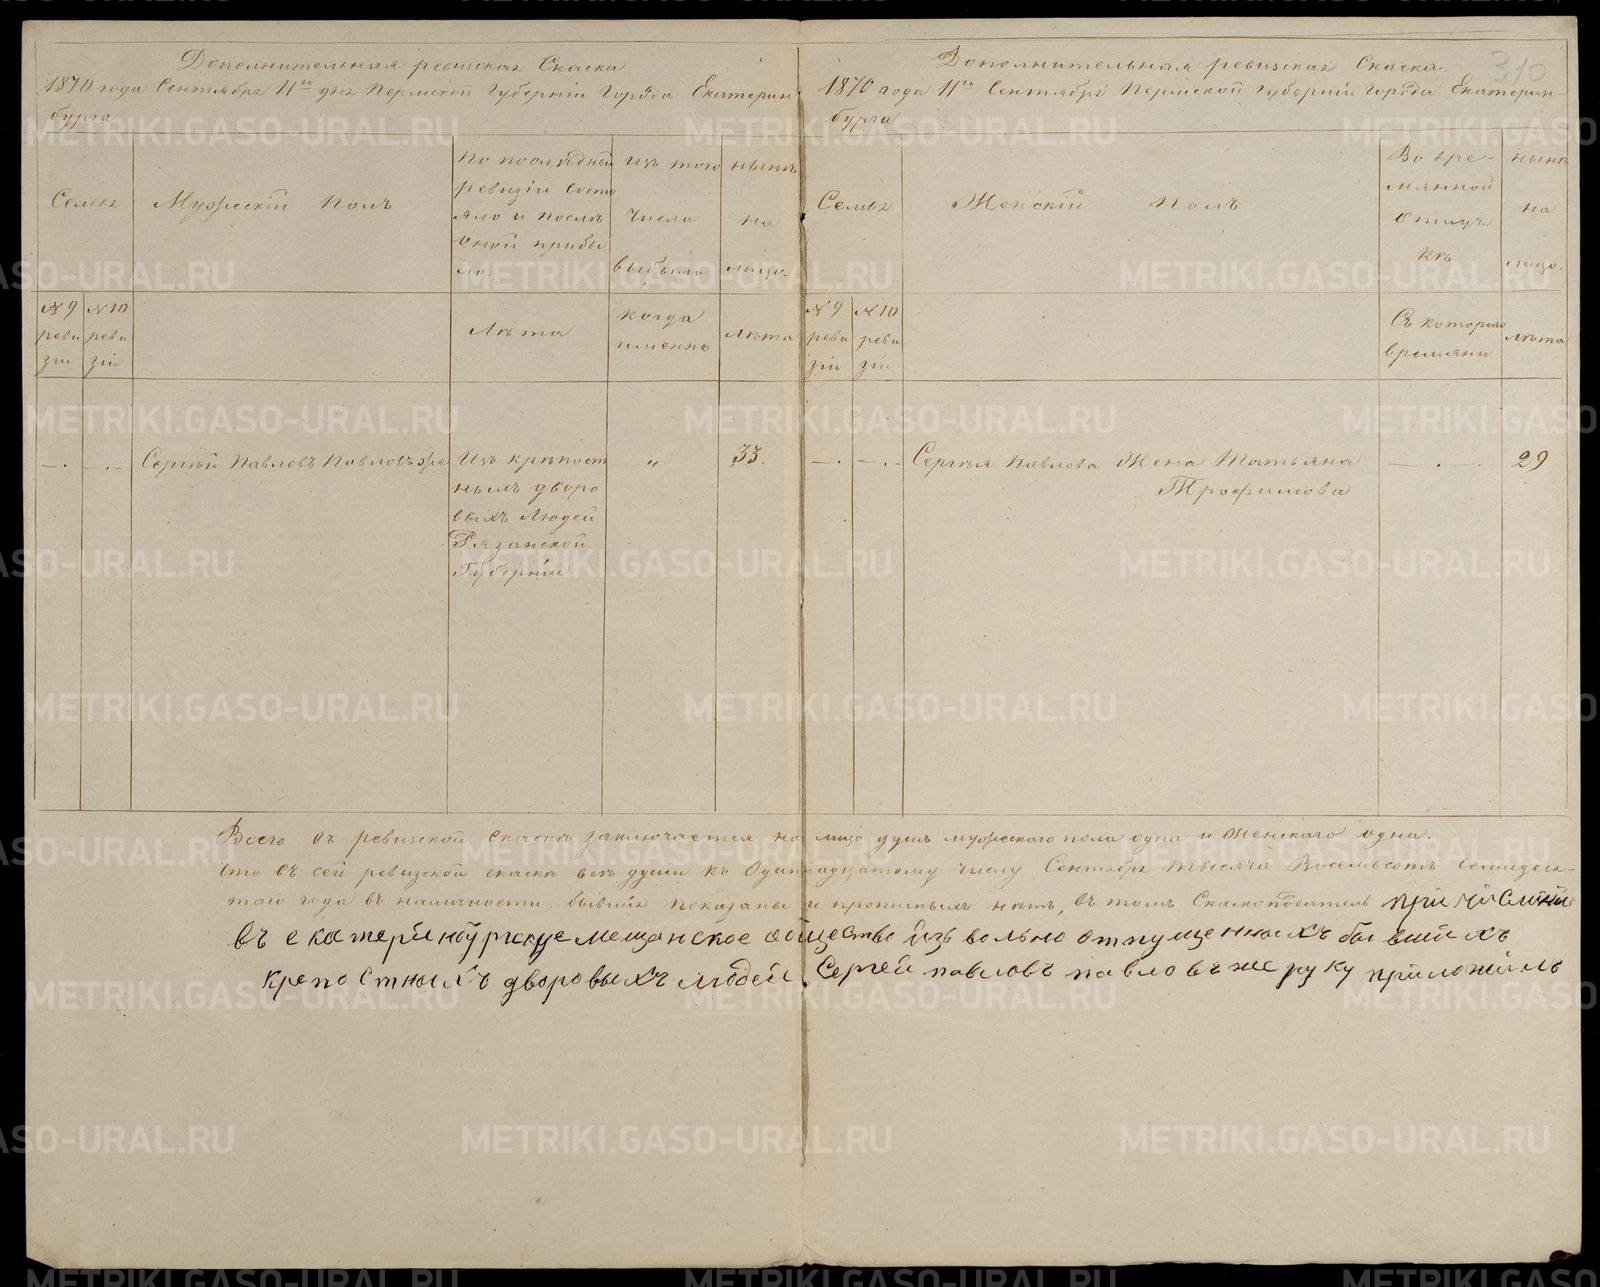 Дополнительная ревизская Скаска
1870 года Сентября 11го дня Пермской Губерніи Города Екатерин-
бурга
Семья
Мужескій Полъ
По последней
ревизіи состо
яло и после
оной прибы
ло.
Изъ того
числа
выбыло
ныне
на
лицо.
№ 9
реви
зіи
№ 10
реви
зіи
Лета
когда
именно
Лета
Сергей Павловъ Павловъ же
Изъ крепост
ныхъ дворо
выхъ Людей
Рязанской
Губерніи
"
33.
Дополнительная ревизская Скаска.
310
1870 года 11го Сентября Пермской Губерніи Города Екатерин-
бурга
Семья
Женскій Полъ
Во вре-
мянной
отлуч
ке
ныне
на
лицо.
№ 9
реви
зіи
№ 10
реви
зіи
Съ котораго
времяни
лета
Сергея Павлова Жена Татьяна
Трофимова
29
Всего въ ревизской скаске заключается на лицо душъ мужескаго пола одна и Женскаго одна.
Что въ сей ревизской скаске все души къ Одинадцатому числу Сентября тысяча Восемьсотъ Семидеся-
таго года въ наличности бывшія показаны и прописныхъ нетъ, въ томъ Скаскоподатель причислїный
въ екатеринбургское мещанское общество изъ вольно отпущенныхъ бывшихъ
крепостныхъ дворовыхъ людей. Сергей павловъ павловъ же руку приложилъ
METRIKI.GASO-URAL.RU